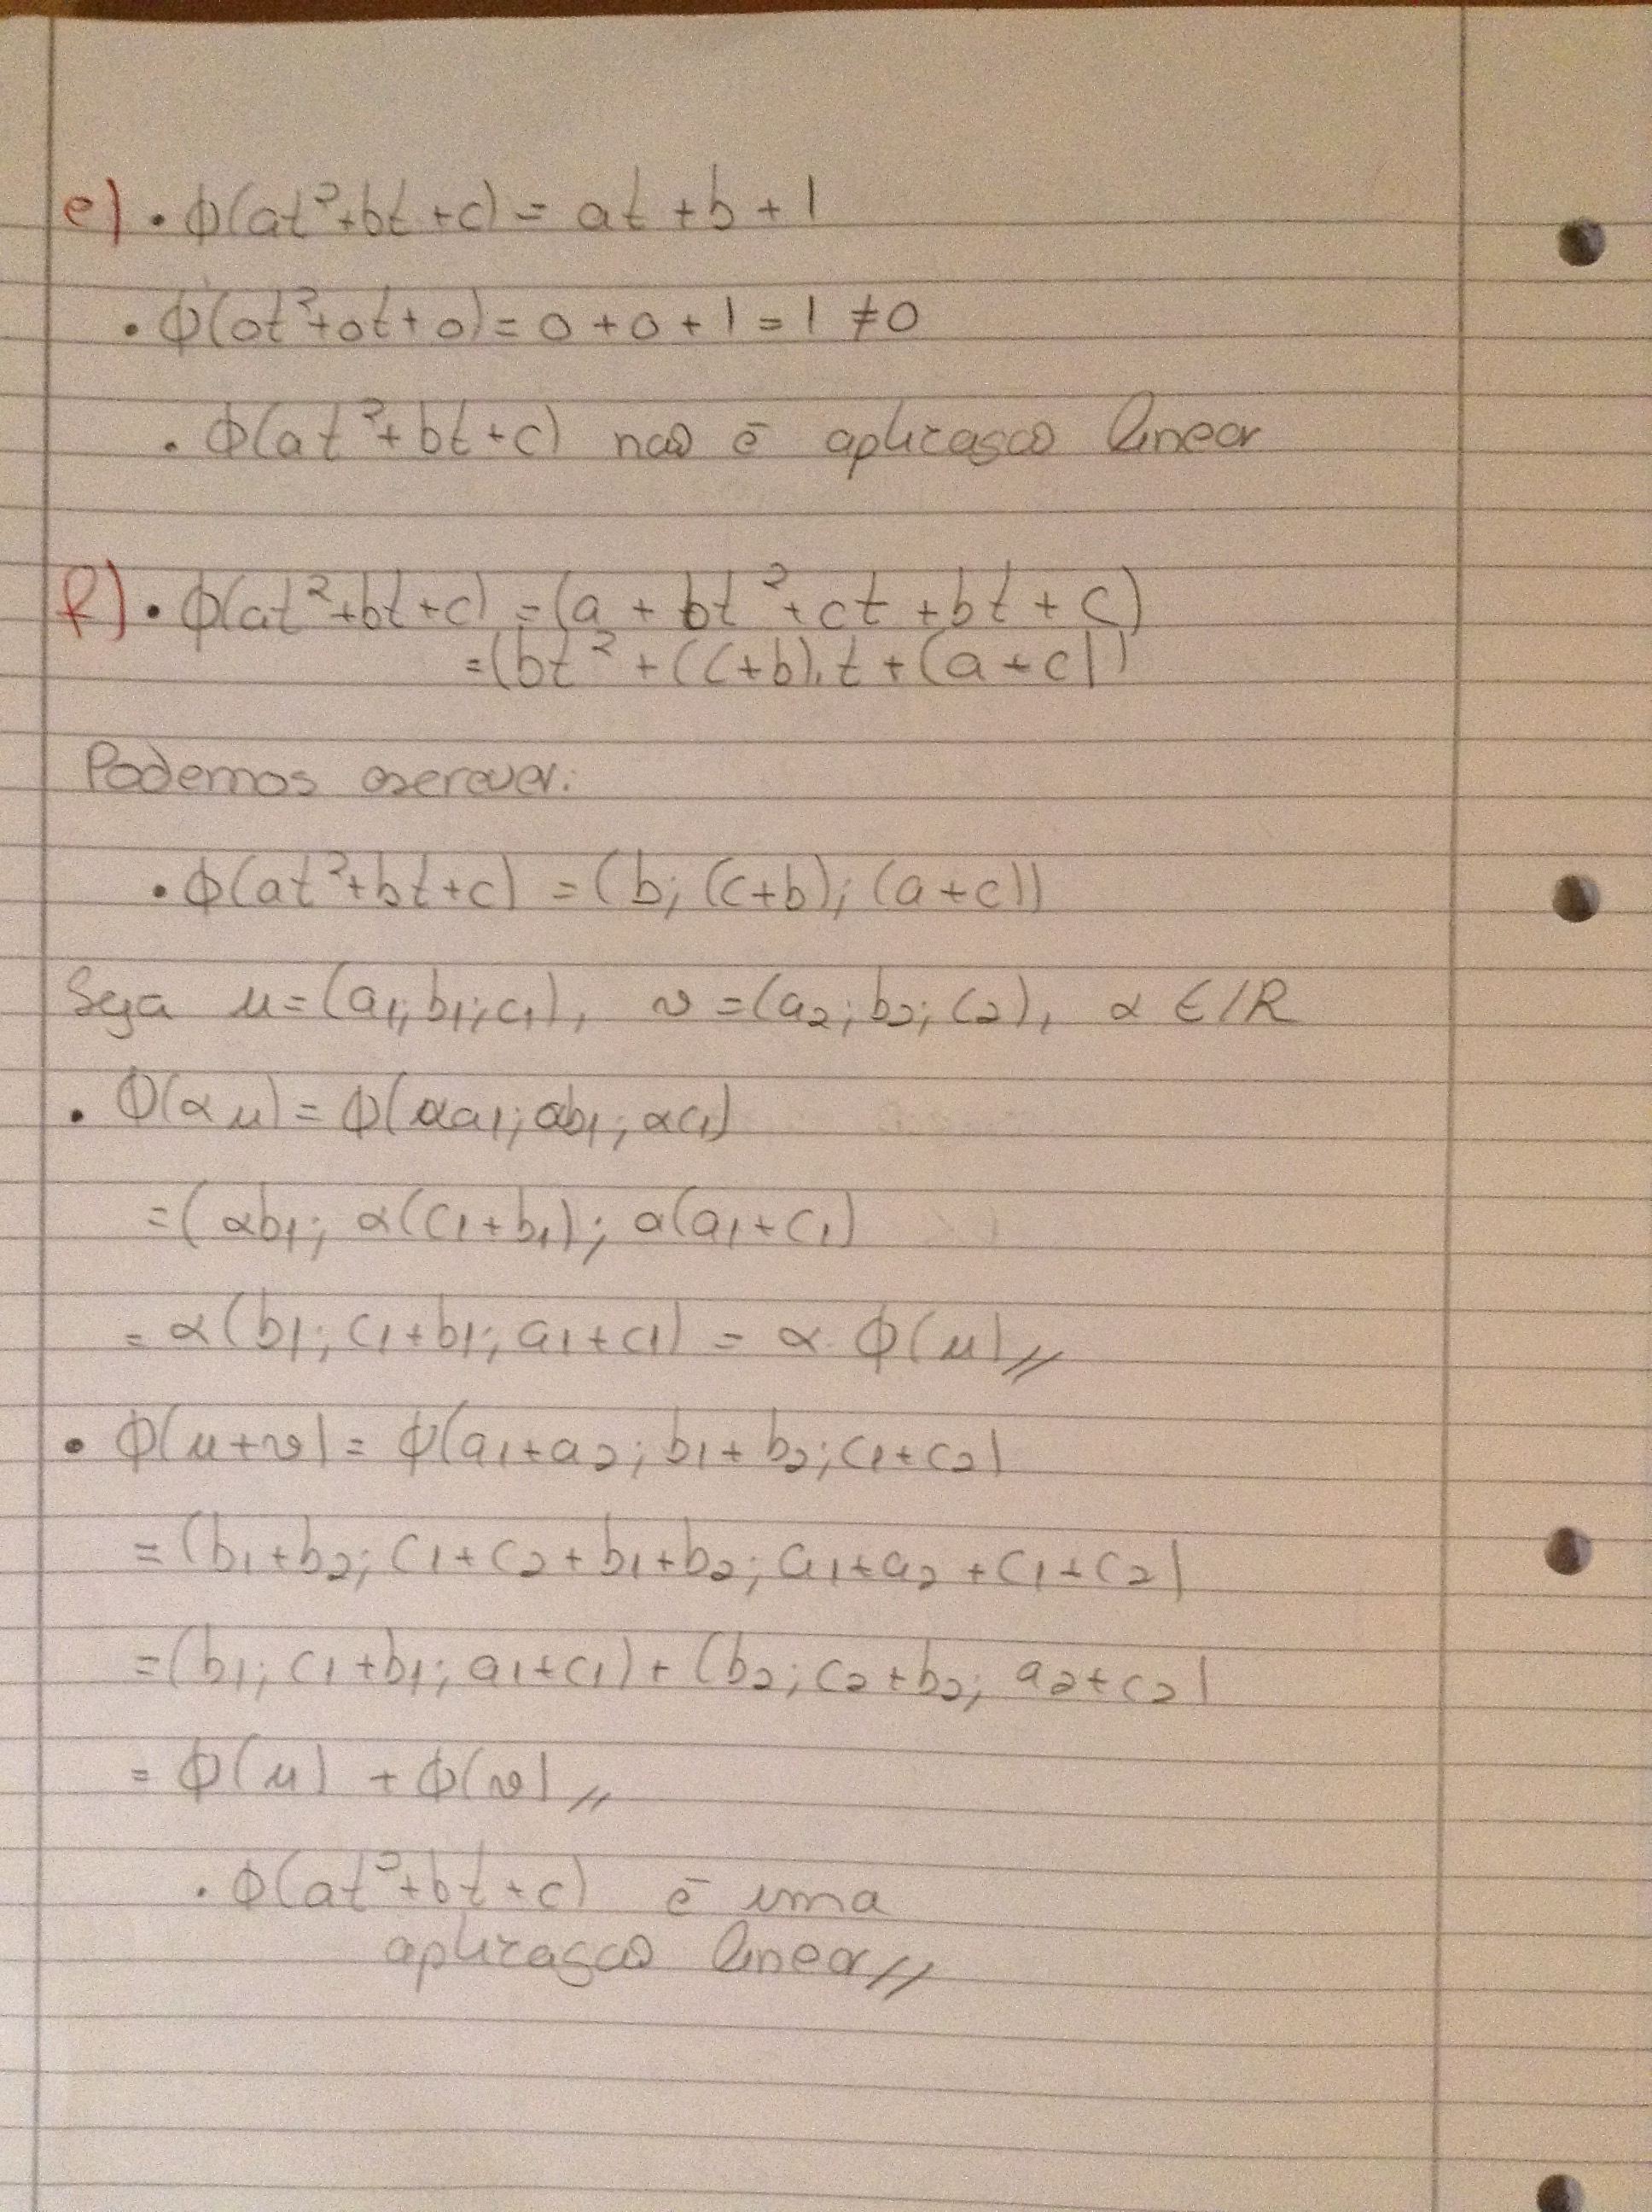 e) • ϕ(at²+bt+c) = at +b + 1
• ϕ(0t²+0t+0) = 0 + 0 + 1 = 1 ≠ 0
• ϕ(at²+bt+c) não é aplicação linear
f) • ϕ(at²+bt+c) = (a + bt² + ct + bt + c)
= (bt² + (c+b).t + (a+c))
Podemos escrever:
• ϕ(at²+bt+c) = (b; (c+b); (a+c))
Seja u = (a₁; b₁; c₁), v = (a₂; b₂; c₂), α ∈ IR
• ϕ(αu) = ϕ(αa₁; αb₁; αc₁)
= (αb₁; α(c₁+b₁); α(a₁+c₁)
= α(b₁; c₁+b₁; a₁+c₁) = α. ϕ(u)//
• ϕ(u+v) = ϕ(a₁+a₂; b₁+b₂; c₁+c₂)
= (b₁+b₂; c₁+c₂+b₁+b₂; a₁+a₂+c₁+c₂)
= (b₁; c₁+b₁; a₁+c₁) + (b₂; c₂+b₂; a₂+c₂)
= ϕ(u) + ϕ(v)//
• ϕ(at²+bt+c) é uma
aplicação linear//